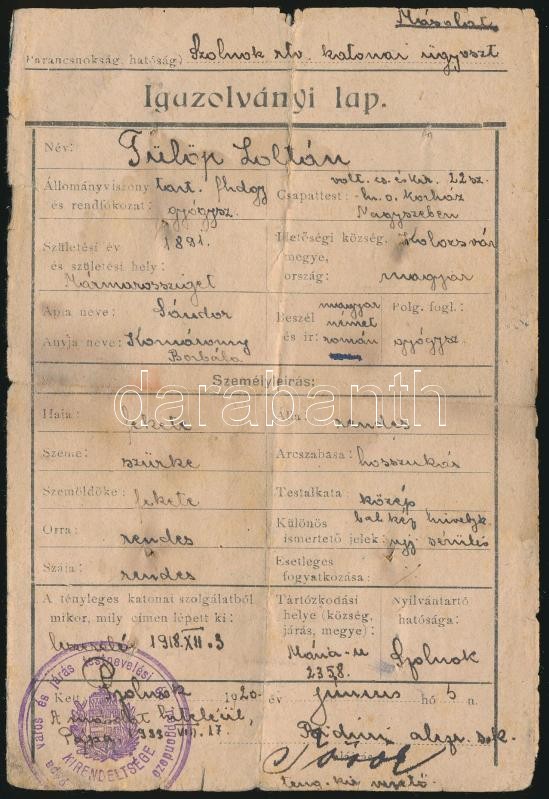 Másolat
Parancsnokság, hatóság) Szolnok rtv. katonai ügyoszt
Igazolványi lap.
Név: Fülöp Zoltán
Állományviszony tart. fhdgy
és rendfokozat: gyógysz.
volt cs. és kir. 22 sz.
Csapattest:
Nagyszeben
Születési év 1891.
és születési hely:
Mármarossziget
Illetőségi község, Kolozsvár
megye,
ország: magyar
Apja neve: Sándor
Anyja neve: Komáromy
Borbála
Beszél magyar
német
és ír: román
Polg. fogl.:
gyógysz.
Személyleírás:
Haja: fekete
Álla: rendes
Szeme: szürke
Arcszabása: hosszukás
Szemöldöke: fekete
Testalkata: közép
Orra: rendes
Különös bal kéz hüvelyk
ismertető jelek: ujj sérülés
Szája: rendes
Esetleges
fogyatkozása:
A tényleges katonai szolgálatból
mikor, mily címen lépett ki:
leszerelés 1918. XII. 3
Tartózkodási
helye (község,
járás, megye):
Mária-u
2358.
Nyilvántartó
hatósága:
Szolnok
Kelt Szolnok 1920. év junius hó 5 n.
A másolat hiteléül,
Pápa, 1939. VIII. 17.
alezr. s.k.
város és járás testnevelési
KIRENDELTSÉGE
darabanth